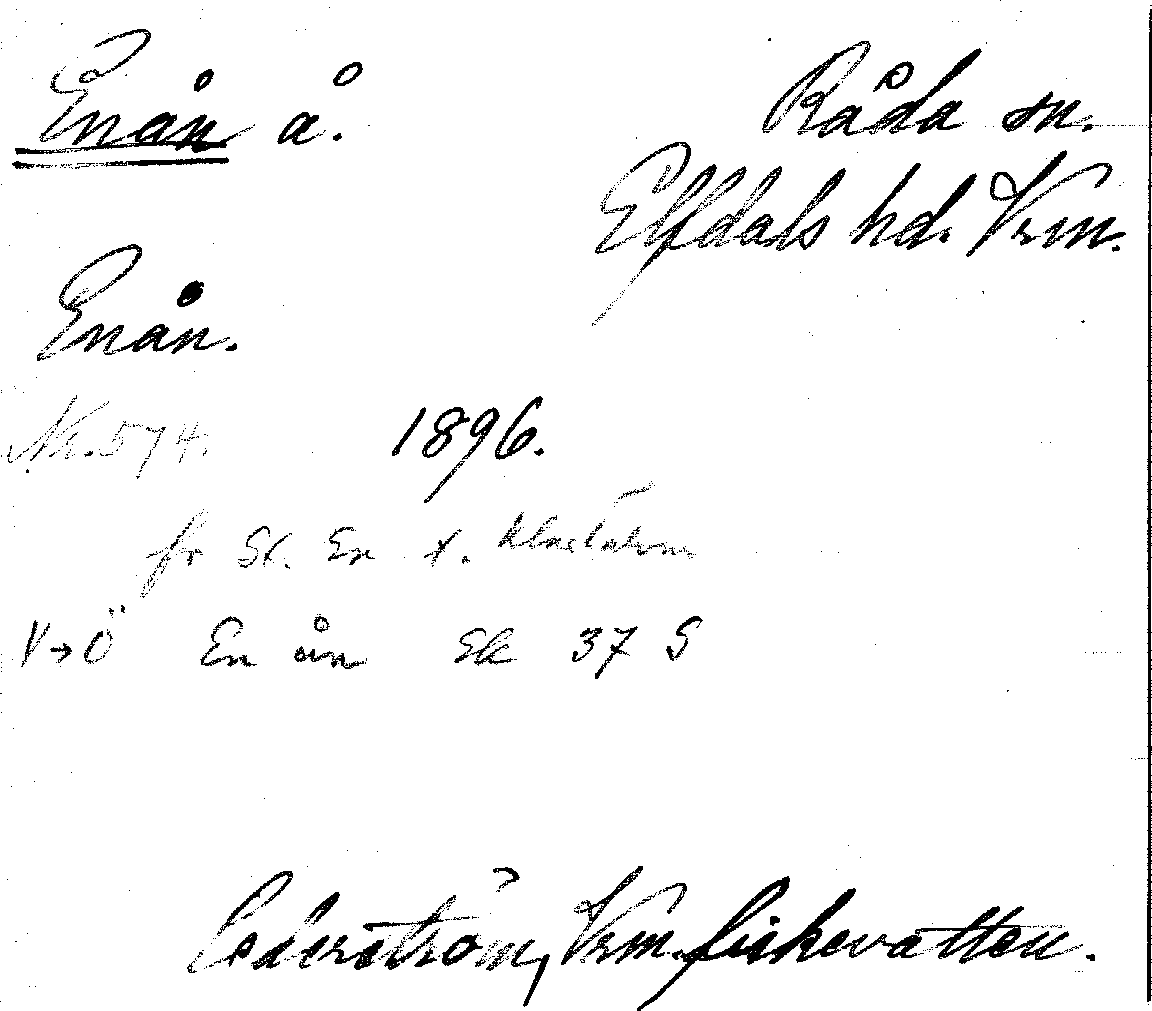 Enån å.
Råda sn.
Elfdals hd. Vrm.
Enån.
Nr. 574. 1896.
fr St. En t. Klarälven
V→Ö En ån Ek 37 S
Cederström, Vrm. fiskevatten.